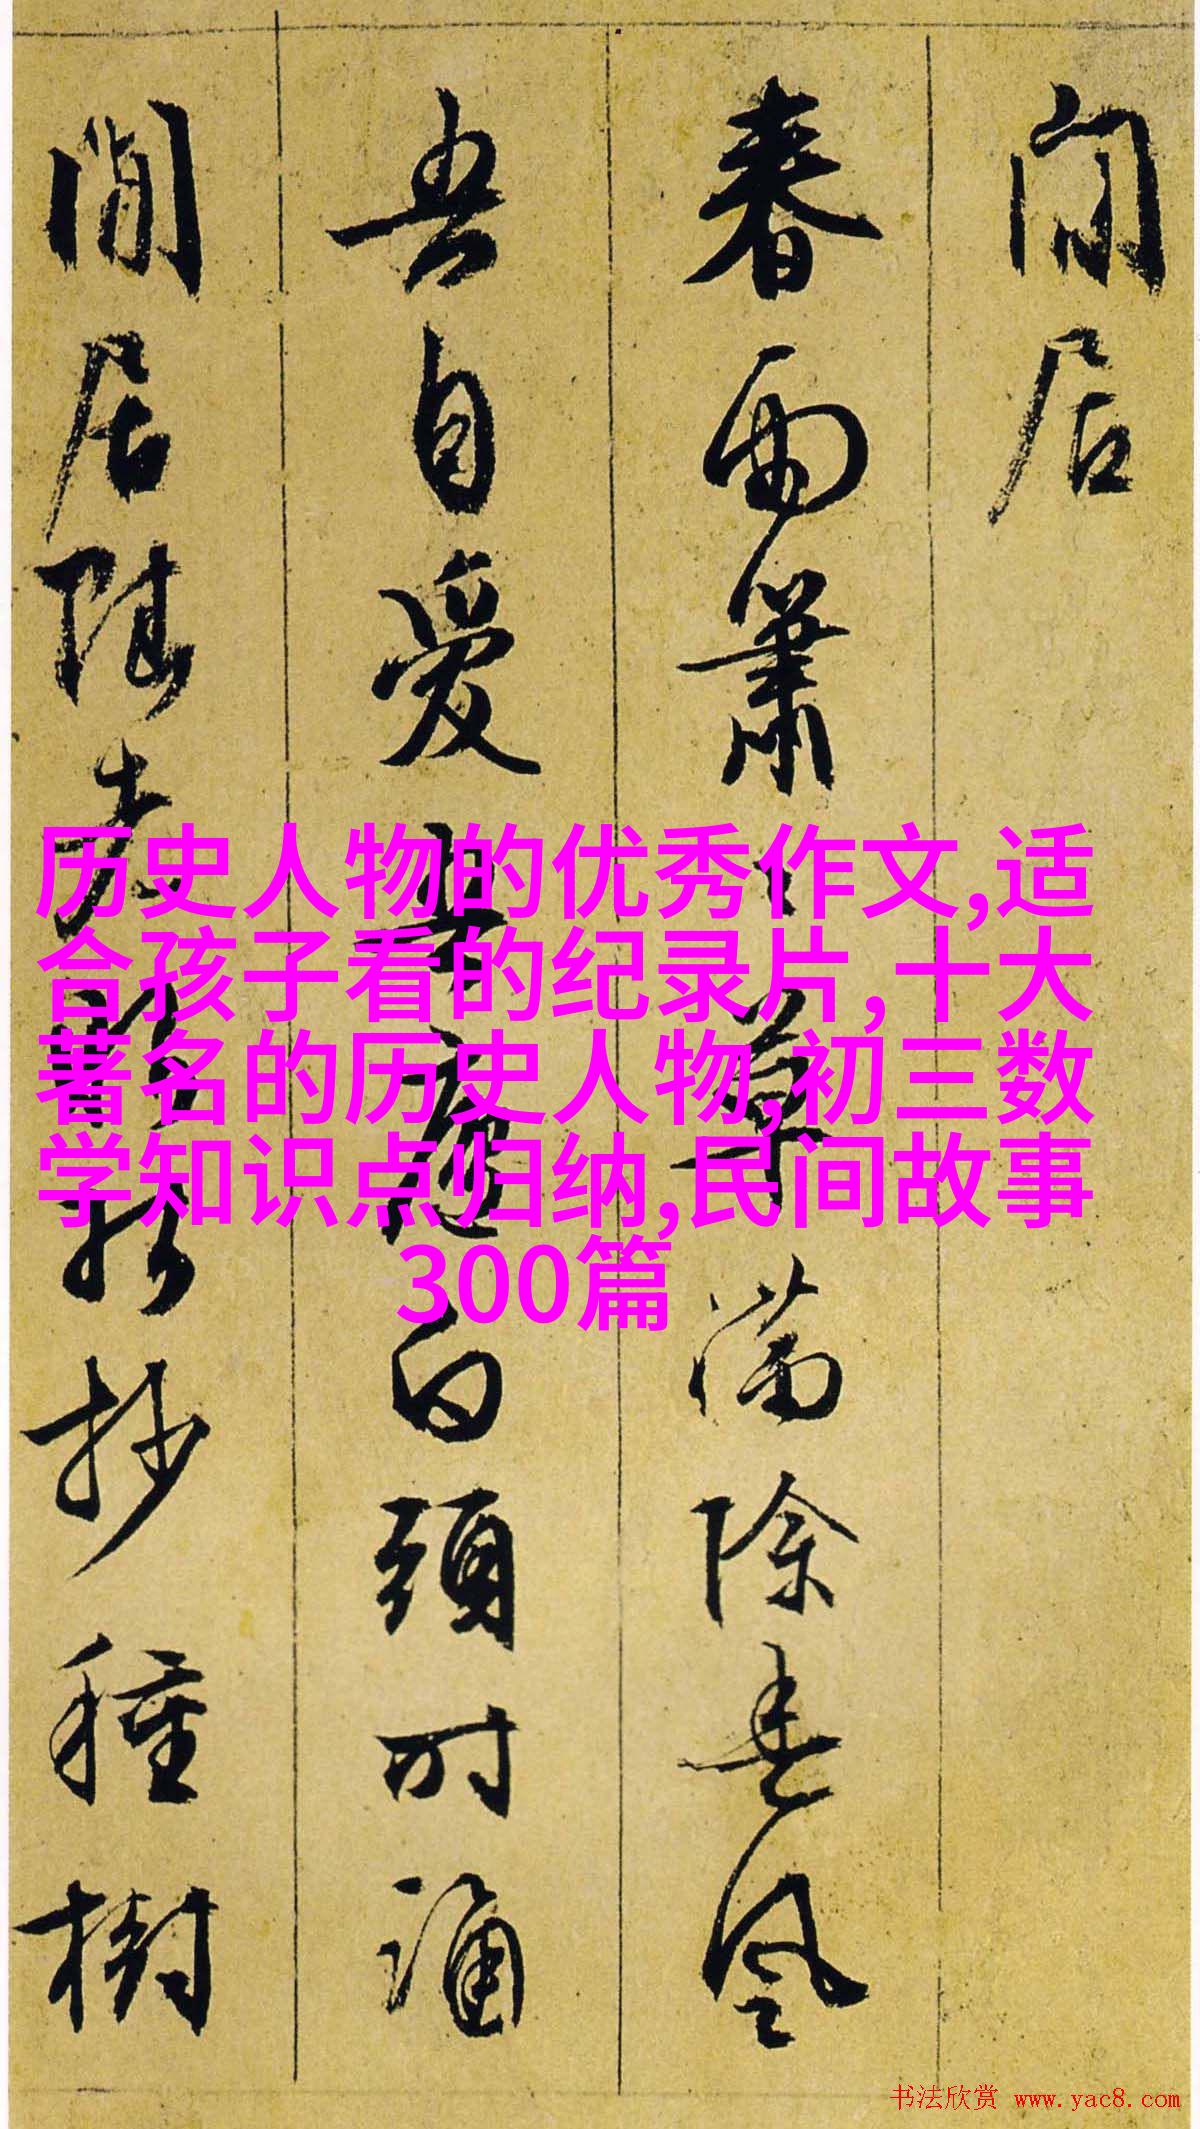 閒居
春雨蕭〻草滿除春風
吾自愛吾廬白頭时誦
閒居賦老抄種樹
历史人物的优秀作文,适
合孩子看的纪录片,十大
著名的历史人物,初三数
学知识点归纳,民间故事
300篇
书法欣赏 www.yac8.com